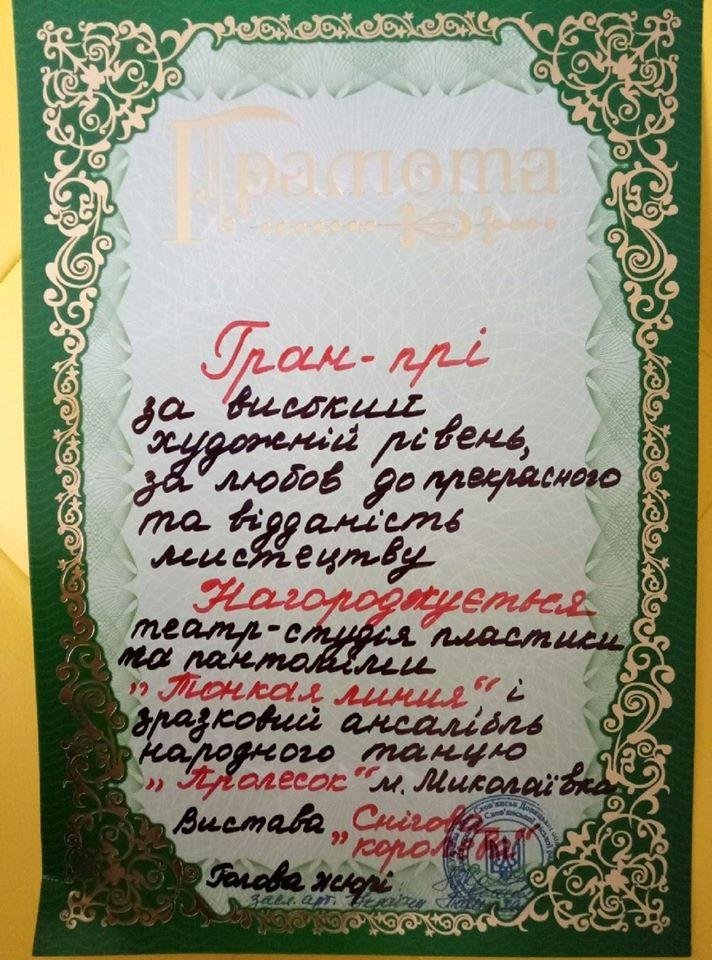 Грамота
Гран-прі
за високий
художній рівень,
за любов до прекрасного
та відданість
мистецтву
Нагороджується
театр-студія пластики
та пантоміми
„Тонкая линия“ і
зразковий ансамбль
народного танцю
„Пролесок“ м. Миколаївка
Вистава „Снігова
королева“
Голова журі
засл. арт. України